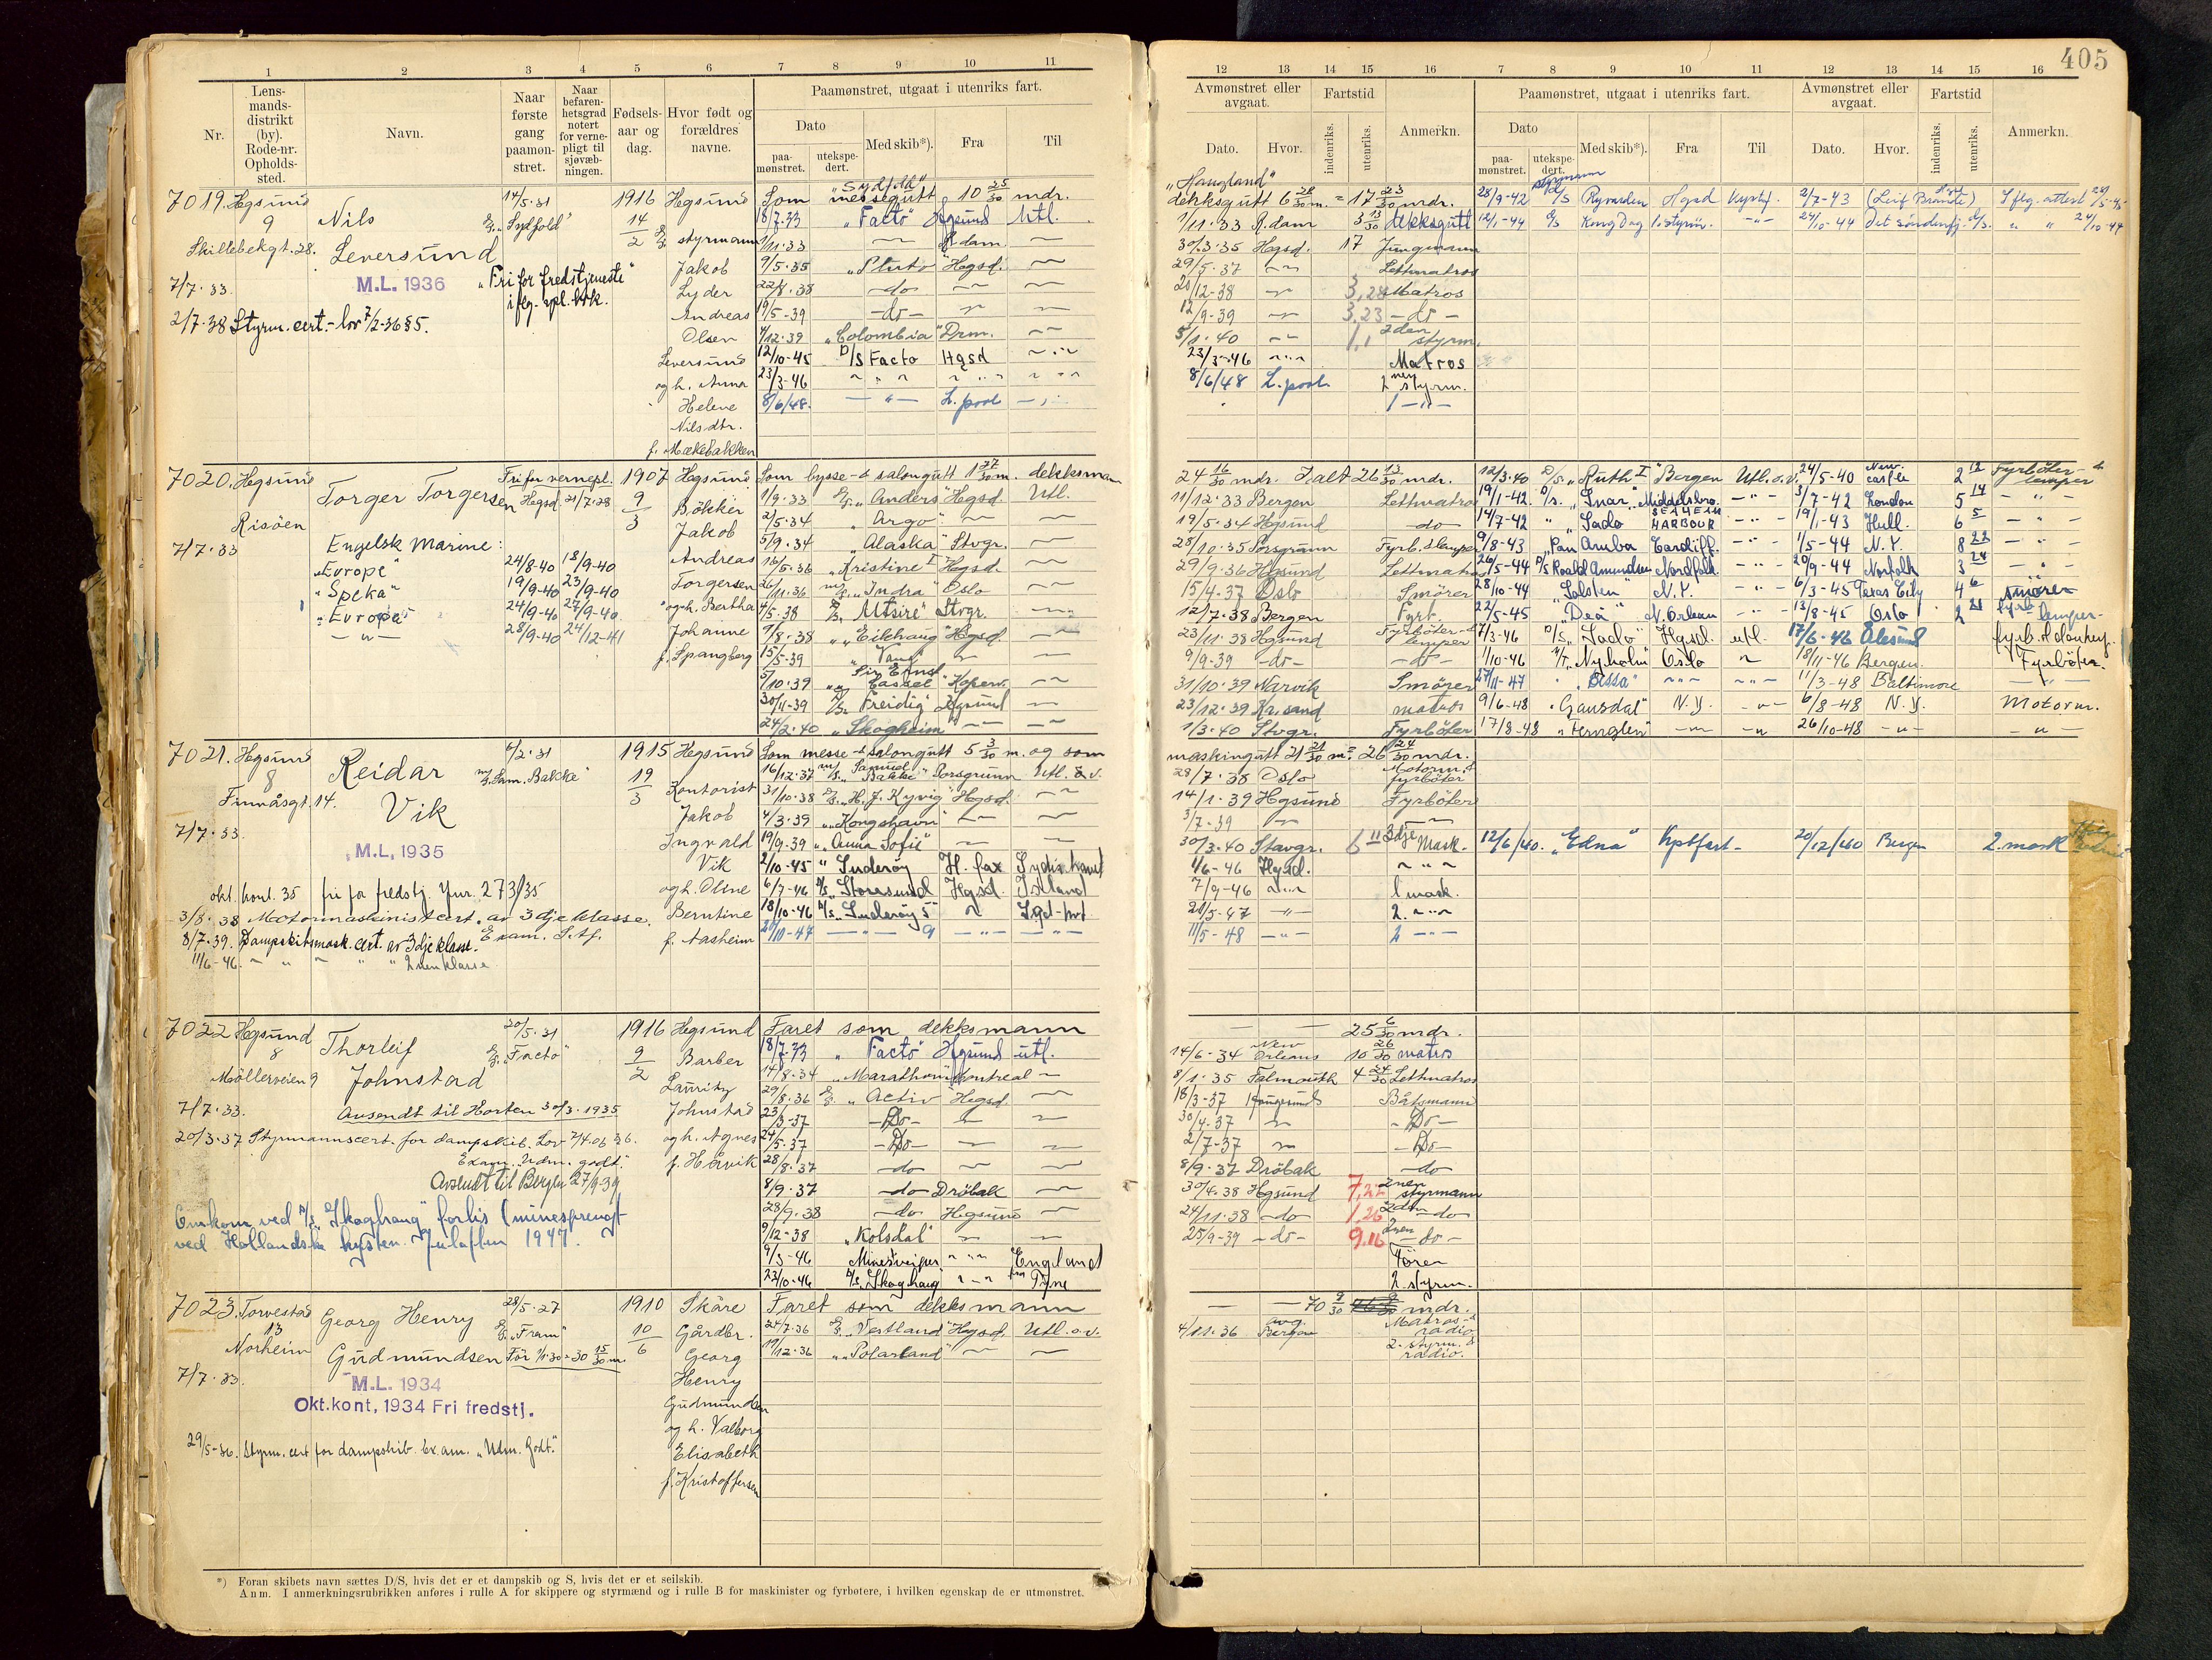 405
1 2 3 4 5 6 7 8 9 10 11
Nr.
Lens-
mands-
distrikt
(by).
Rode-nr.
Opholds-
sted.
Navn.
Naar
første
gang
paamøn-
stret.
Naar
befaren-
hetsgrad
notert
for verne-
pligt til
sjøvæb-
ningen.
Fødsels-
aar og
dag.
Hvor født og
forældres
navne.
Paamønstret, utgaat i utenriks fart.
Dato
paa-
mønstret.
utekspe-
dert.
Med skib*).
Fra
Til
12 13 14 15 16
Avmønstret eller
avgaat.
Dato.
Hvor.
Fartstid
indenriks.
utenriks.
Anmerkn.
7 8 9 10 11 12 13 14 15 16
Paamønstret, utgaat i utenriks fart.
Dato
paa-
mønstret.
utekspe-
dert.
Med skib*).
Fra
Til
Avmønstret eller
avgaat.
Dato.
Hvor.
Fartstid
indenriks.
utenriks.
Anmerkn.
7019. Hgsund
9
Skillebekgt. 28.
7/7.33
Nils
Leversund
M.L. 1936
14/5.31
"Sydfold"
"Fri for fredstjeneste"
2/7.38 Styrm. cert.- lov 7/2-36 §5.
1916
14/2
Hgsund
styrmann
Jakob
Lyder
Andreas
Olsen
Leversund
og h. Anna
Helene
Nilsdtr.
f. Mækebakken
Som messegutt "Sydfold" 10 25/30 mdr.
18/7.33 "Facto" Hgsund Utl.
1/11.33 — R.dam —
9/5.35 "Pluto" Hgsd. —
22/8.38 —do— — —
19/5-39 —do— — —
4/12.39 "Colombia" Drm. —
12/10-45 D/S Facto Hgsd — " —
23/3-46 " " " " " "
8/6/48. — " — L.pool —
"Haugland"
dekksgutt 6 28/30 m. = 17 23/30 mdr.
1/11.33 R.dam 3 13/30 dekksgutt
30/3.35 Hgsd. 17 Jungmann
29/5.37 — Lettmatros
20/12-38 — 3,28 Matros
12/9-39 — 3,23 — do —
5/1.40 — 1,1 2den styrm.
23/3-46 — " — Matros
8/6/48 L.pool 2nen styrm.
1 — " —
28/9-42 D/S Ryvarden Hgsd Kystf. 2/7-43 (Leif Brandt)
12/1-44 D/S Kong Dag 1. styrm. — " — 24/10-44 Det søndenfj.
7020. Hgsund
Risöen
7/7.33
Torger Torgersen
Fri for vernepl.
Hgsd. 21/7.28
Engelsk Marine:
"Europe" 24/8-40 18/9-40
"Speka" 19/9-40 23/9-40
"Europe" 24/9-40 27/9-40
— " — 28/9-40 24/12-41
1907
9/3
Hgsund
Bökker
Jakob
Andreas
Torgersen
og h. Bertha
Johanne
f. Spangberg
Som bysse- & salongutt 1 27/30 m. dekksmann
1/9.33 "Anders" Hgsd. Utl.
2/5.34 "Argo" — —
5/9.34 "Alaska" Stvgr. —
16/5.36 "Kristine I" Hgsd. —
26/11.36 "Indra" Oslo —
4/5.38 "Utsire" Stvgr. —
9/8.38 "Eikhaug" Hgsd. —
15/5-39 "Vang" — —
5/10.39 "Sir Ernst Cassel" Koperv. —
30/11-39 D/S Freidig Hgsund —
24/2.40 "Skogheim" — —
24 16/30 mdr. Ialt 26 13/30 mdr.
11/12.33 Bergen Lettmatros
19/5.34 Hgsund —do
28/10.35 Porsgrunn Fyrb. & lemper
29/9.36 Hgsund Lettmatros
15/4-37 Oslo Smörer
12/7.38 Bergen Fyrb.
23/11.38 Hgsund Fyrböter & lemper
9/9-39 -do- —do—
31/10.39 Narvik Smörer
23/12.39 Kr.sand matros
5/3.40 Stvgr. Fyrböter
12/3.40 D/S. "Ruth I" Bergen Utl. o.v. 24/5-40 Newcastle 2 12 Fyrböter & lemper
19/1-42. D/S. "Snar" Middelsbro. — " — 3/7-42 London 5 14 — " —
14/7-42 " "Sado" SEAHEIM HARBOUR — " — 19/1-43 Hull. 6 5 — " —
9/8-43 "Pan Aruba Cardiff. — " — 1/5-44 N.Y. 8 22 — " —
26/5-44 D/S Roald Amundsen Nordfolk. — " — 20/9-44 Norfolk 3 24 — " —
28/10-44 "Solsten" N.Y. — " — 6/3-45 Texas City 4 6 smörer
22/5-45 "Dea" N.Orlean — " — 13/8-45 Oslo 2 21 fyrb- lemper-
7/3-46 D/S "Sado" Hgsd. utl. 17/6-46 Ålesund
1/10-46 M/T. "Nyholm" Oslo — 18/11-46 Bergen. Fyrböter.
27/11-47 " "Bissa" — " — — " — 11/3-48 Baltimore — " —
9/6-48 "Gausdal" N.Y. — " — 6/8-48 N.Y. Motorm.
17/8-48 "Fernglen" — " — — " — 26/10-48 — " — — " —
7021. Hgsund
8
Finnåsgt. 14.
7/7.33
Reidar
Vik
M.L, 1935
4/2.31
"Sam. Bakke"
okt. kont. 35 fri for fredstj. Jnr. 273/35
3/8.38 Motormaskinistcert. av 3dje klasse.
Exam. S.tf.
8/7.39. Dampskibsmask. cert. av 3dje klasse.
11/6-46. " " " " 2nen klasse
1915
19/3
Hgsund
Kontorist
Jakob
Ingvald
Vik
og h. Oline
Berntine
f. Aasheim
Som messe- & salongutt 5 3/30 m. og som
16/12.37 M/S. "Samuel Bakke" Porsgrunn Utl. & v.
31/10.38 "H. J. Kyvig" Hgsd. —
4/3.39 "Kongshavn" — —
19/9-39 "Anna Sofie" — —
2/10-45 " Suderøy H.fax Sydishavet
6/7-46 D/S. Storesund Hgsd. Island
18/10-46 D/S. "Suderøy 5 " —
20/10-47 — " — 9 — " — — " —
maskingutt 21 21/30 m. = 26 24/30 mdr.
28/7.38 Oslo Motorm. & fyrböter
14/1.39 Hgsund Fyrböter
3/7-39 — —
30/3.40 Stavgr. 6 11 3dje Mask.
1/6-46 Hgsd. " " "
7/9-46 — " — 1 mask.
20/5-47 — " — 2. — " —
11/5-48 — " — 2 — " —
12/6/40. "Edna" Kystfart- 20/12/40 Bergen 2. mask
7022 Hgsund
8
Möllerveien 9
7/7.33.
Thorleif
Johnstad
20/5.31
"Facto"
Avsendt til Horten 30/3.1935
20/3.37 Styrmannscert. for dampskib. Lov 7/4.06 § 6.
Exam. "Udm. godt."
Avsendt til Bergen 27/9-39
Omkom ved D/S "Skoghaug" forlis (minesprengt
ved Hollandske kysten. Julaften 1947.
1916
9/2
Hgsund
Barber
Lauritz
Johnstad
og h. Agnes
f. Hervik
Faret som dekksmann
18/7.33 " Facto" Hgsund utl.
14/8.34 "Marathon" Montreal —
29/8.36 "Activ" Hgsd. —
23/3-37 —Do— — —
24/5.37 —Do— — —
28/8.37 —do — —
8/9.37 —do Dröbak —
28/9.38 —do Hgsund —
9/12-38 "Kolsdal" — —
9/3-46 Minesveiper. — " — England
22/10-46 D/S. Skoghaug — " — Tyne
— — 25 6/30 mdr.
14/6-34 New Orleans 10 26/30 matros
8/1.35 Falmouth 4 24/30 Lettmatros
18/3-37 Haugesund Båtsmann
30/4.37 — -Do-
2/7-37 — -Do-
8/9.37 Dröbak —do
30/4.38 Hgsund 7,22 2nen styrmann
24/11.38 —do 1,26 2den —do—
25/9-39 —do— 9.16 2nen — do —
Förer
2. styrm.
7023. Torvestad
13
Norheim
7/7.33.
Georg Henry
Gudmundsen
28/5.27
"Fram"
Før 1/1.30 = 30 15/30 m.
M.L. 1934
Okt.kont, 1934 Fri fredstj.
29/5-36. Styrm. cert for dampskib. Exam. "Udm. Godt."
1910
10/6
Skåre
Gårdbr.
Georg
Henry
Gudmundsen
og h. Valborg
Elisabeth
f. Kristoffersen
Faret som dekksmann
24/7.36 "Vestland" Hgsd. Utl. o.v.
19/12.36 "Polarland" — —
— — 70 9/30 mdr.
4/11.36 avg. Bergen Matros- & radio
2. styrm. & radio.
*) Foran skibets navn sættes D/S, hvis det er et dampskib og S, hvis det er et seilskib.
Anm. I anmerkningsrubrikken anføres i rulle A for skippere og styrmænd og i rulle B for maskinister og fyrbøtere, i hvilken egenskap de er utmønstret.